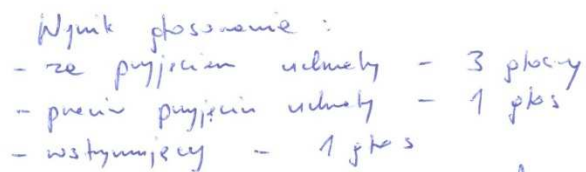 Wynik głosowania :
- za przyjęciem uchwały - 3 głosy
- przeciw przyjęciu uchwały - 1 głos
- wstrzymujący - 1 głos